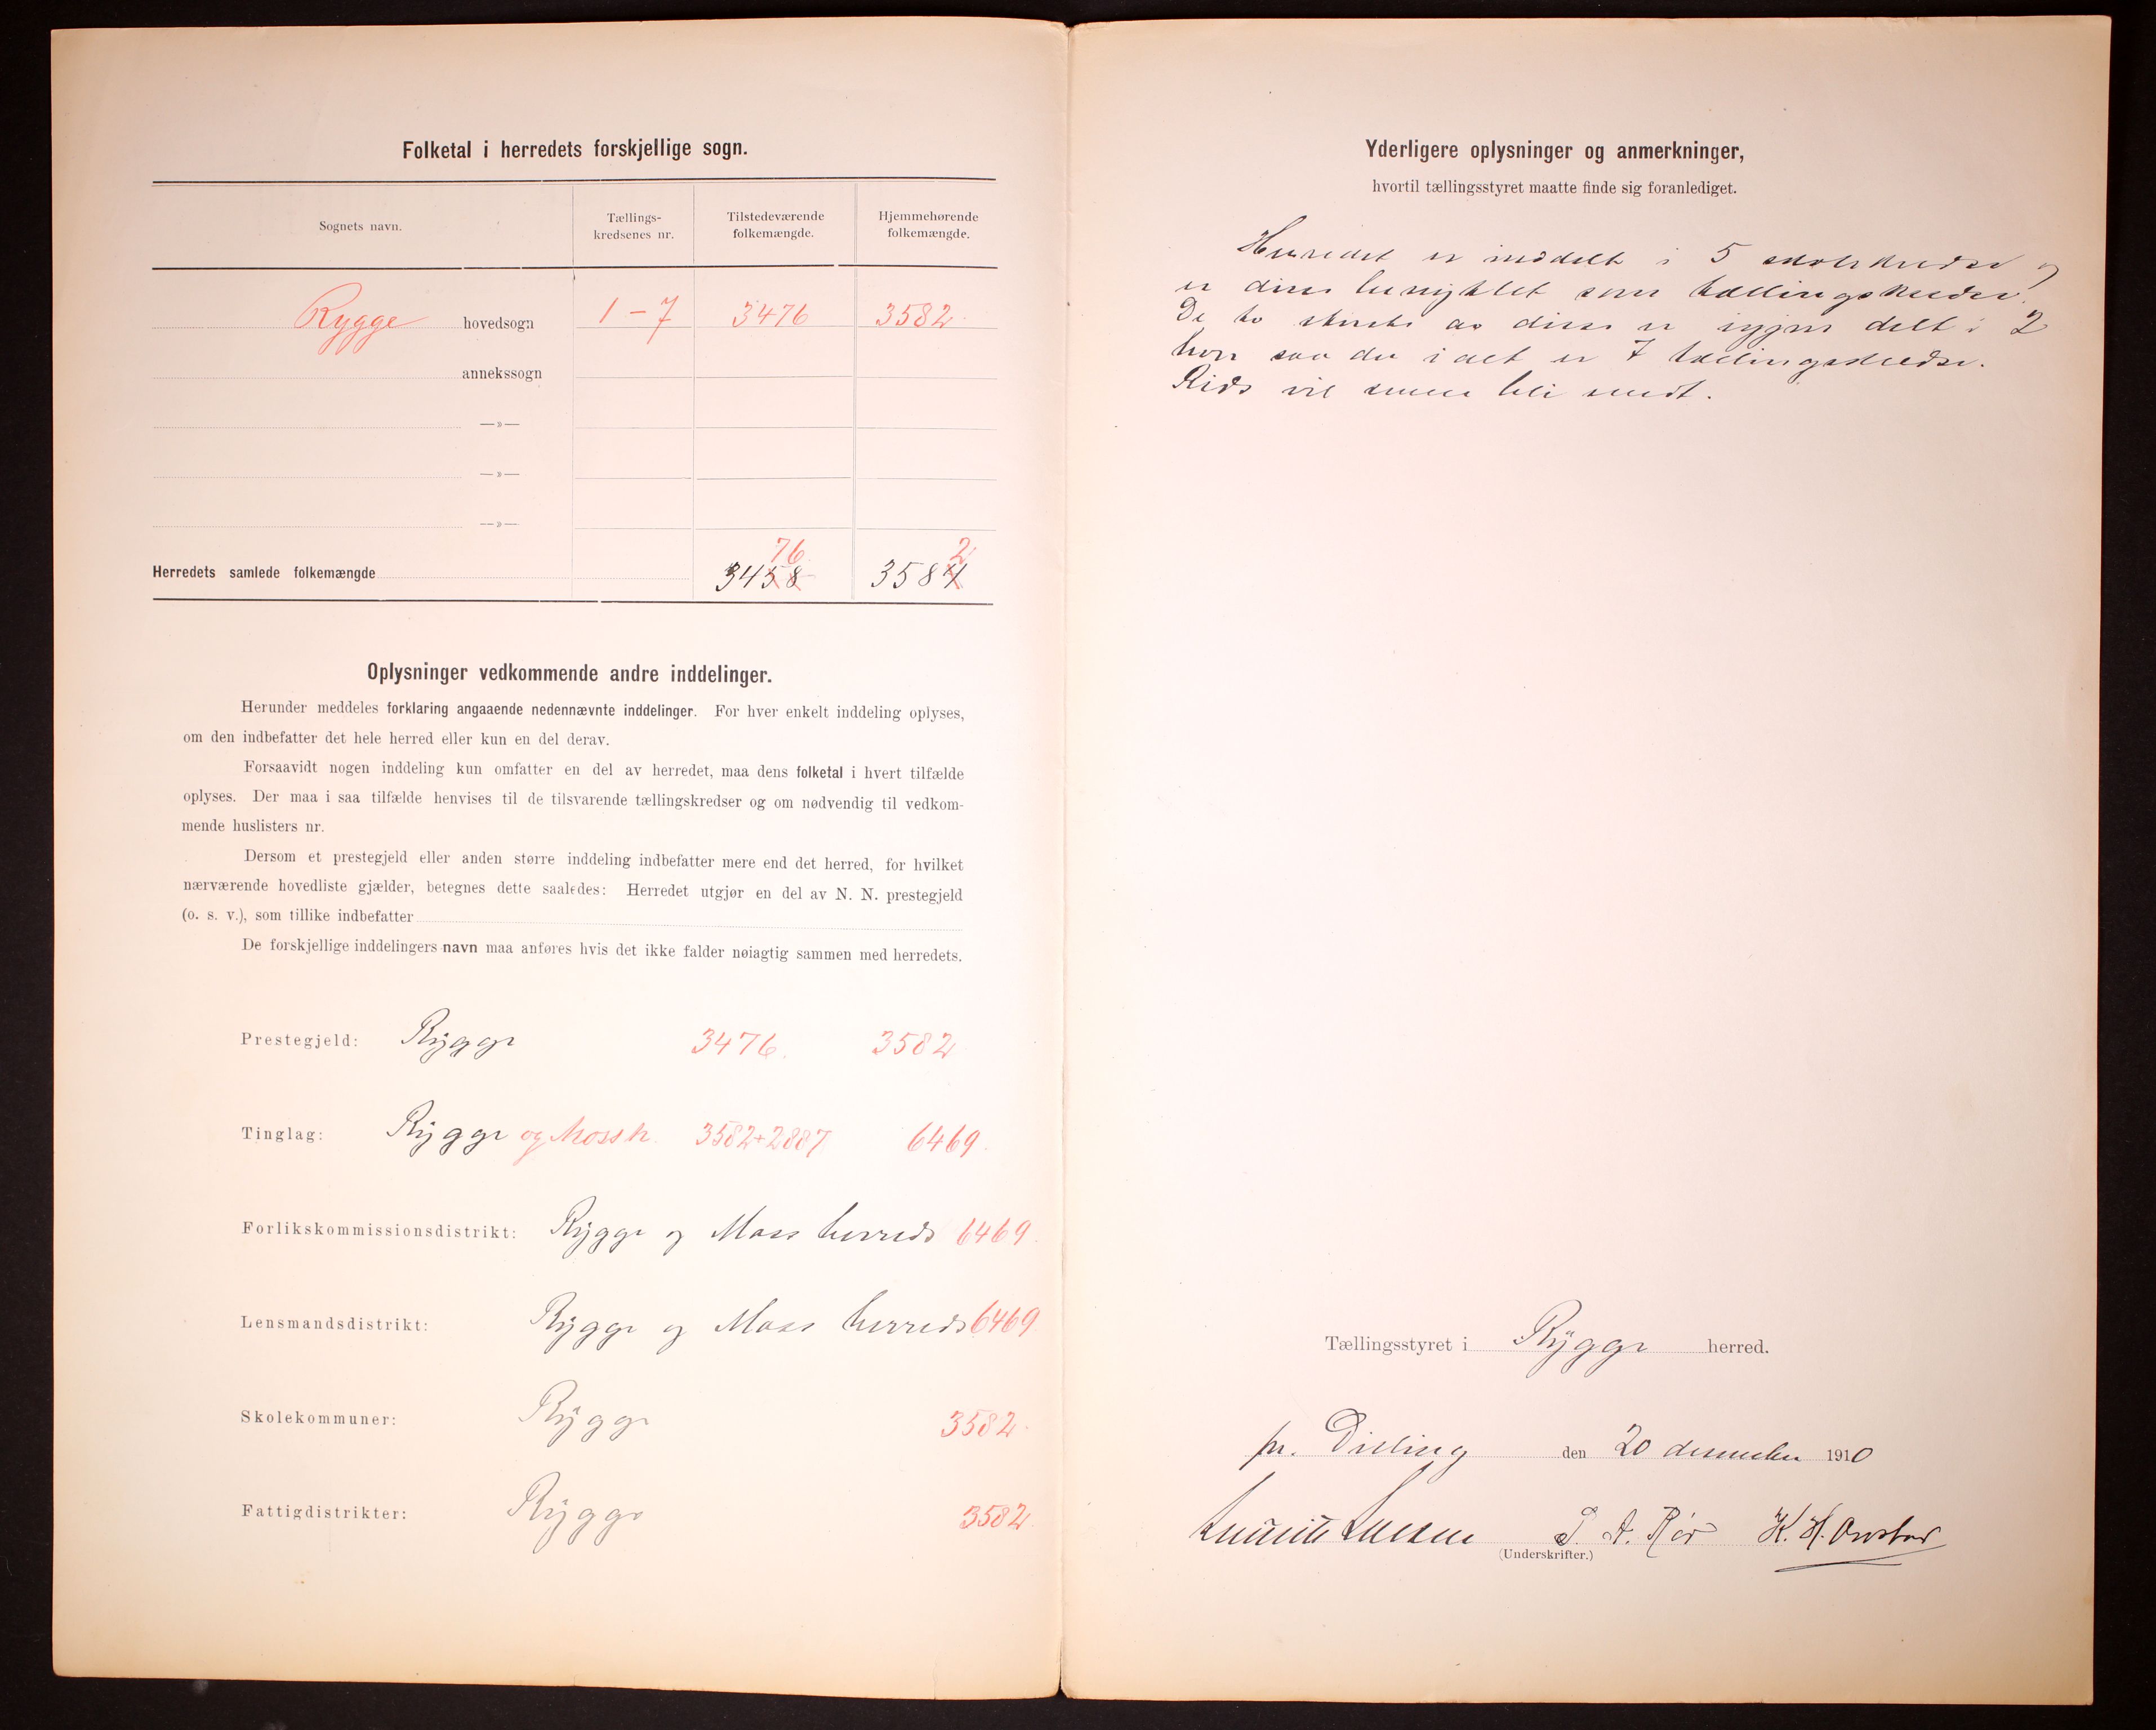 Folketal i herredets forskjellige sogn.
Sognets navn. Tællings-kredsenes nr. Tilstedeværende folkemængde. Hjemmehørende folkemængde.
Rygge hovedsogn 1-7 3476 3582
annekssogn
—»—
—»—
—»—
76 2
Herredets samlede folkemængde 3458 3584
Oplysninger vedkommende andre inddelinger.
Herunder meddeles forklaring angaaende nedennævnte inddelinger. For hver enkelt inddeling oplyses,
om den indbefatter det hele herred eller kun en del derav.
Forsaavidt nogen inddeling kun omfatter en del av herredet, maa dens folketal i hvert tilfælde
oplyses. Der maa i saa tilfælde henvises til de tilsvarende tællingskredser og om nødvendig til vedkom-
mende huslisters nr.
Dersom et prestegjeld eller anden større inddeling indbefatter mere end det herred, for hvilket
nærværende hovedliste gjælder, betegnes dette saaledes: Herredet utgjør en del av N. N. prestegjeld
(o. s. v.), som tillike indbefatter
De forskjellige inddelingers navn maa anføres hvis det ikke falder nøiagtig sammen med herredets.
Prestegjeld: Rygge 3476. 3582
Tinglag: Rygge og Moss h. 3582+2887 6469.
Forlikskommissionsdistrikt: Rygge og Moss herreds 6469.
Lensmandsdistrikt: Rygge og Moss herreds 6469
Skolekommuner: Rygge 3582.
Fattigdistrikter: Rygge 3582.
Yderligere oplysninger og anmerkninger,
hvortil tællingsstyret maatte finde sig foranlediget.
Herredet er inddelt i 5 skolekredse og
er disse benyttet som tællingskredse.
De to største av disse er igjen delt i 2
hver saa der i alt er 7 tællingskredse.
Rids vil senere bli sendt.
Tællingsstyret i Rygge herred.
pr. Dilling den 20 december 1910
S. A. Rør K. H.
(Underskrifter.)